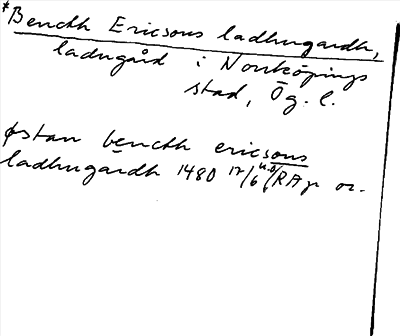 *Bencth Ericsons ladhugardh,
ladugård i Norrköpings
stad, Ög. l.
østan bencth ericsons
ladhugårdh 1480 17/6 u.o/RAp or.